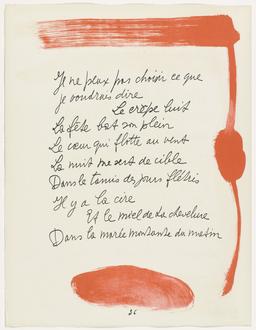 Je ne peux pas choisir ce que
je voudrais dire
Le crêpe luit
La fête bat son plein
Le cœur qui flotte au vent
La nuit me sert de cible
Dans le tamis des jours flétris
Il y a la cire
Et le miel de la chevelure
Dans la marée montante du matin
26